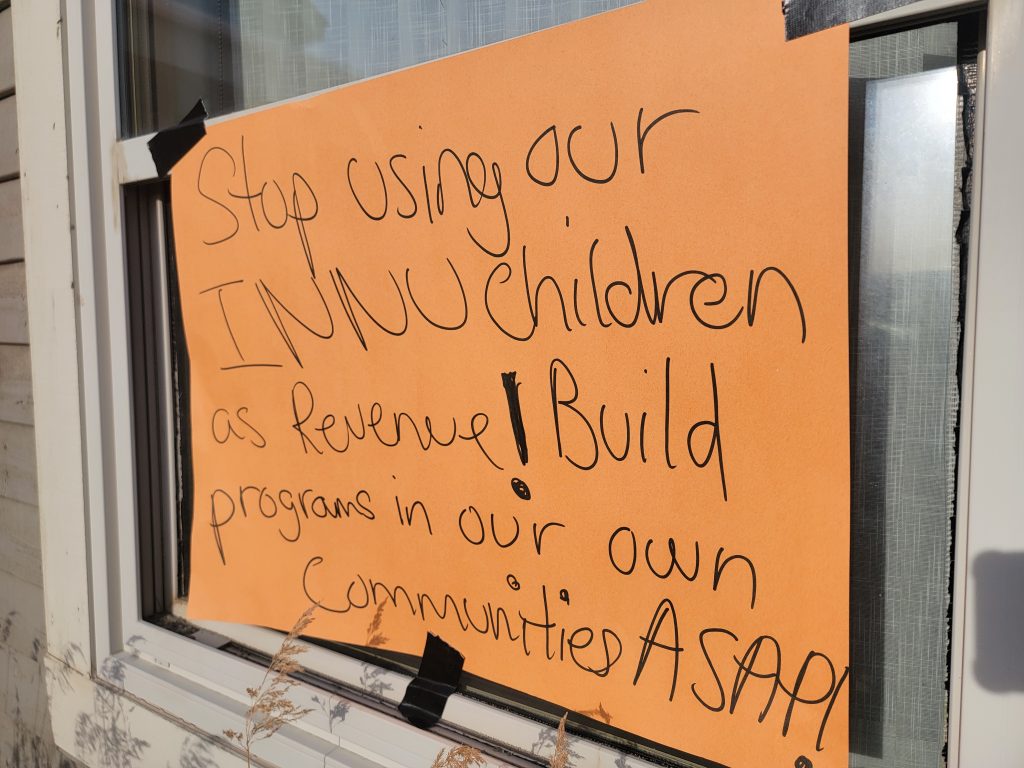 Stop using our
INNU children
as Revenue! Build
programs in our own
Communities ASAP!